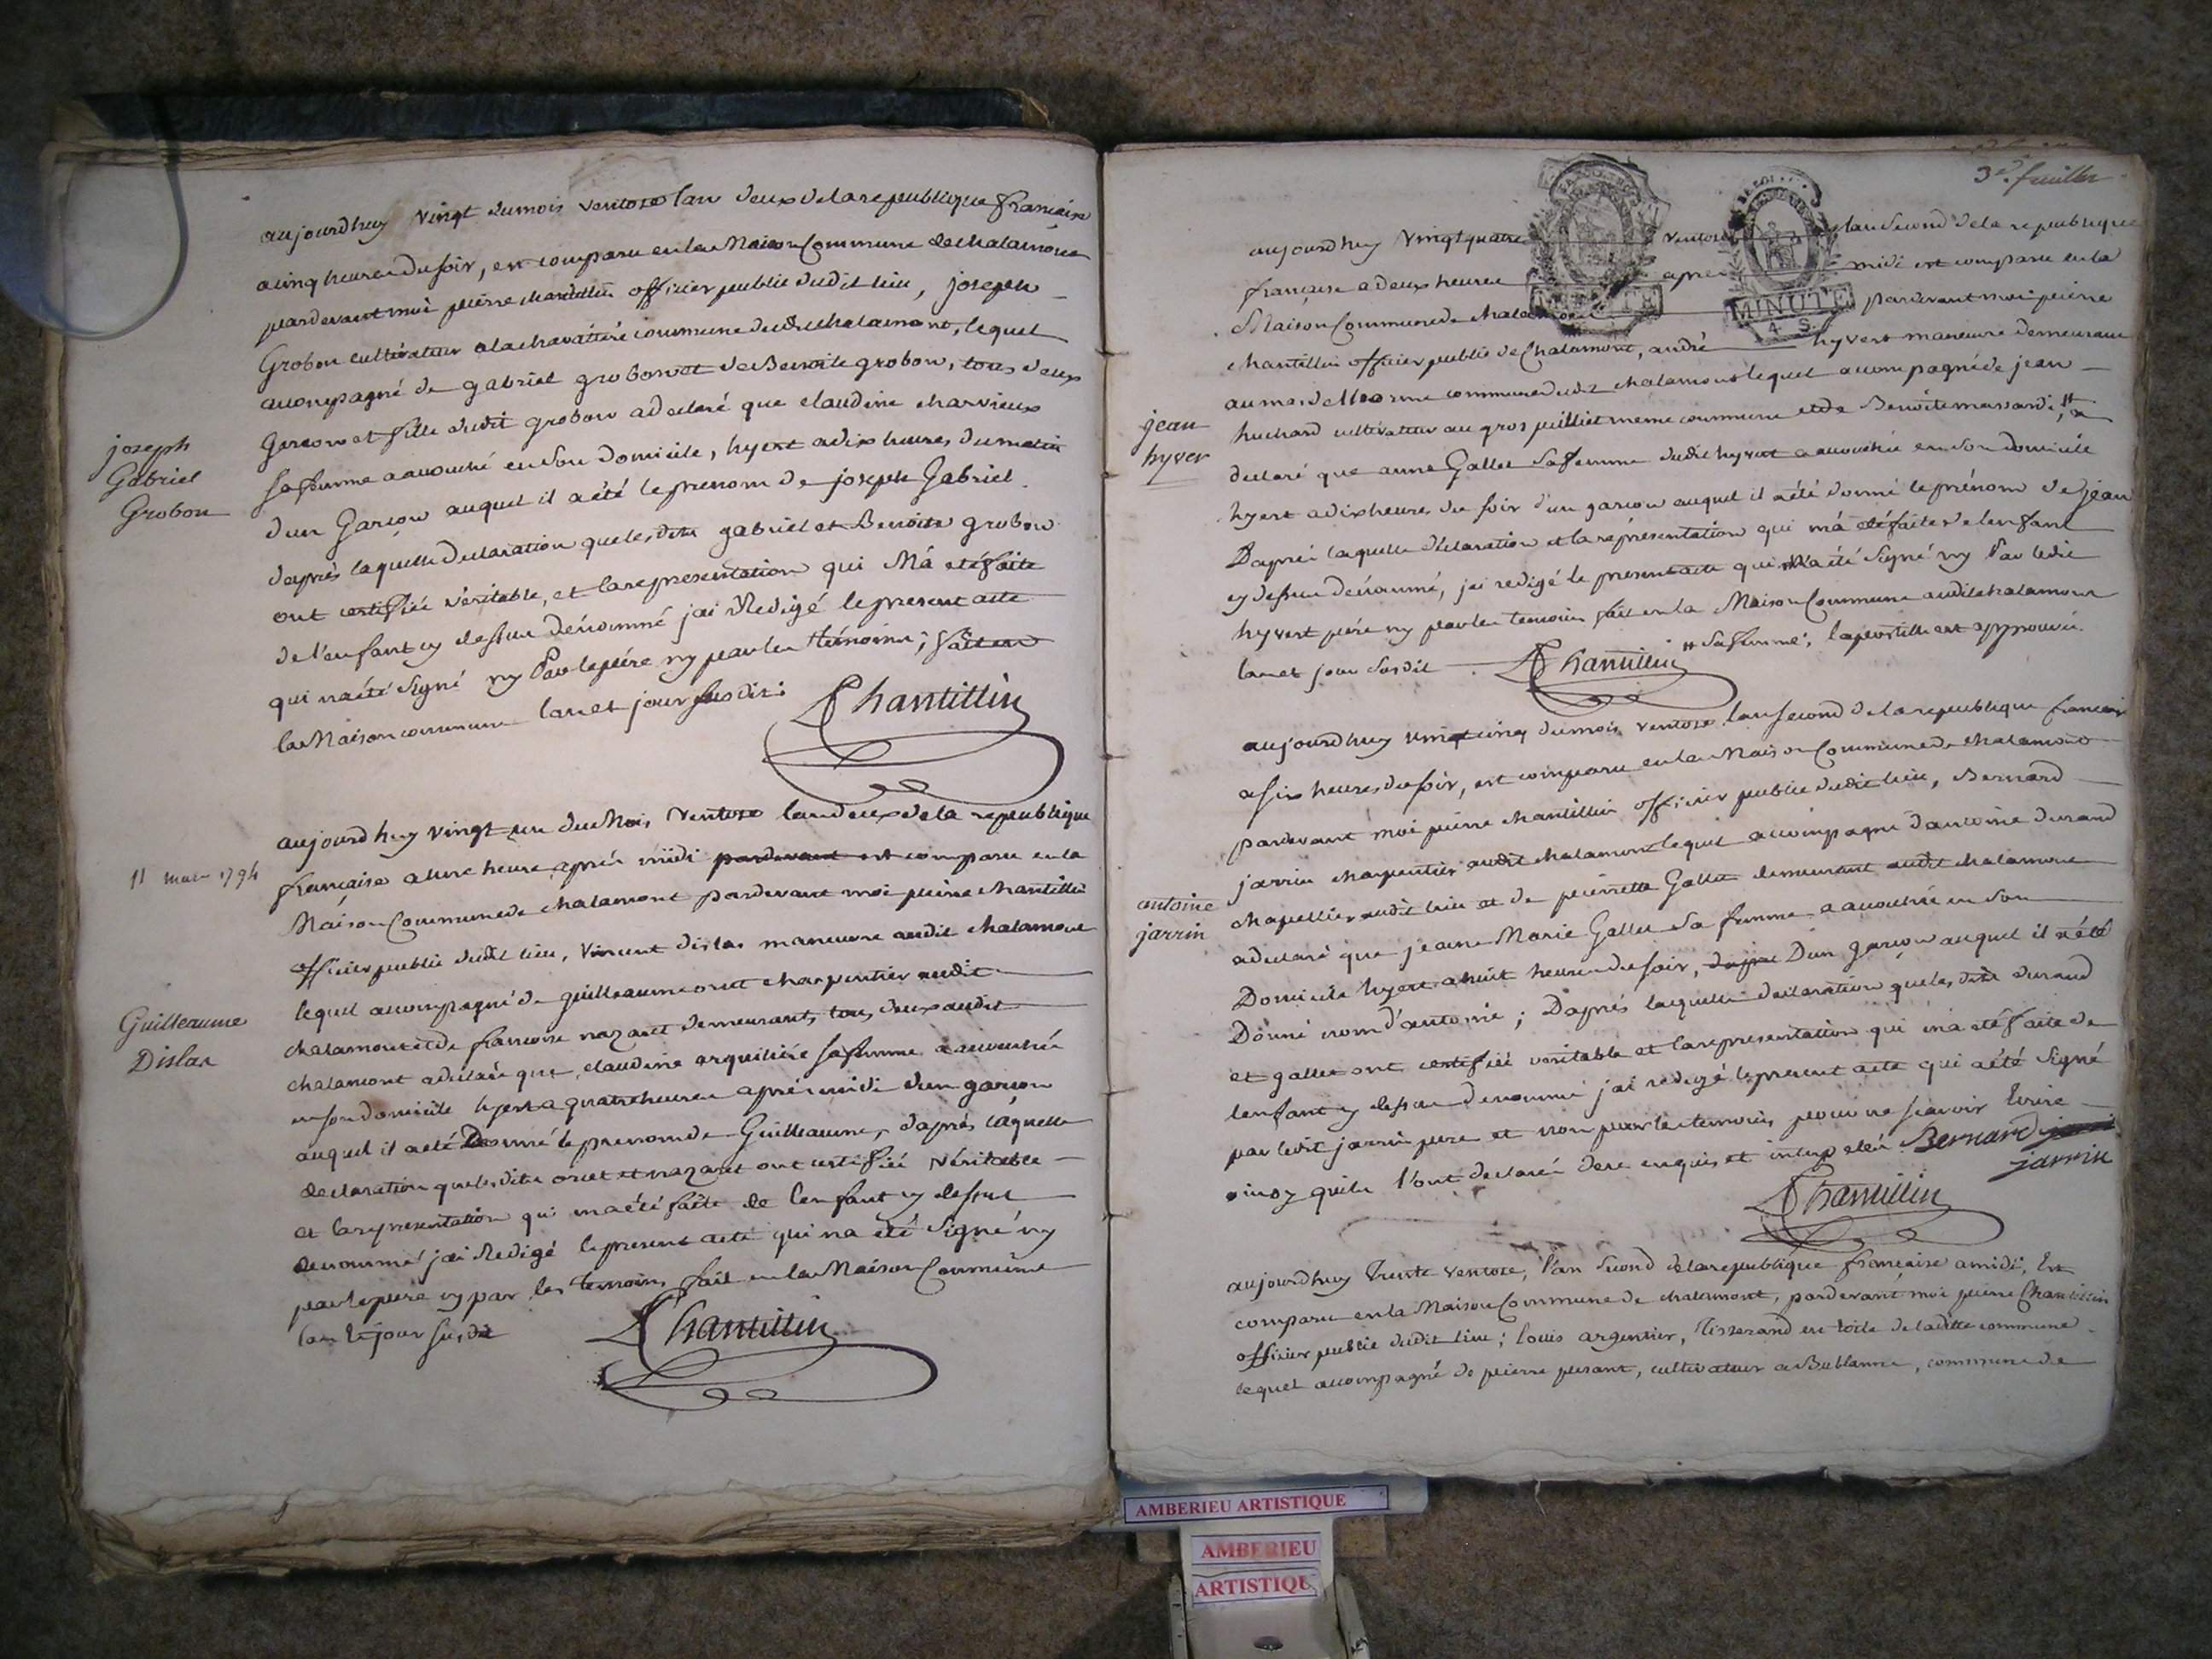 aujourdhuy vingt dumois ventose lan deux dela republique francaise
a cinq heures du soir, est comparu en la Maison Commune de chalamont
pardevant moi pierre chantillin officier public dudit lieu, joseph
Grobon cultivateur a la commune dudit chalamont, lequel
accompagné de gabriel grobon et de Benoite grobon, tous deux
Garcon et fille dudit grobon a declaré que claudine charvieux
sa femme a accouché en son domicile, hyert a dix heures du matin
dun Garcon auquel il a été le prenom de joseph Gabriel.
daprés laquelle declaration que lesdits gabriel et Benoite grobon
ont certifiée véritable, et la representation qui M'a eté faite
de l'enfant cy dessus dénommé jai Redigé le present acte
qui na été signé ny Par le pére ny par les témoins; fait en
la Maison commune lan et jour susdit:
Chantillin
joseph
Gabriel
Grobon
aujourdhuy vingt un du Mois Ventose lan deux de la republique
française a une heure aprés midi pardevant est comparu en la
Maison Commune de chalamont pardevant moi pierre chantillin
officier public dudit lieu, Vincent dislas maneuvre audit chalamont
lequel accompagné de guilleaume oriet charpentier audit
chalamont et de francoise nazaret demeurants tous deux audit
chalamont a declaré que claudine arquiliére sa femme a accouchée
en son domicile hyert a quatre heures aprés midi dun garcon
auquel il a eté Donné le prenom de Guilleaume, daprés laquelle
declaration que lesdits oriet et nazaret ont certifiée véritable
et la representation qui ma été faite de l'enfant cy dessus
denommé jai Redigé le present acte qui na eté signé ny
par le pére ny par les temoins fait en la Maison Commune
lan et jour susdit
Chantillin
11 mars 1794
Guilleaume
Dislas
3e. feuillet
MINUTE
MINUTE
4. S.
aujourdhuy Vingt quatre ventose lan second de la republique
française a deux heures aprés midi est comparu en la
Maison Commune de chalamont pardevant moi pierre
chantillin officier public de Chalamont, andré hyvert maneuvre demeurant
au mas de commune dudit chalamont lequel accompagné de jean
huchard cultivateur au gros même commune et de Benoite #a
declaré que anne Gallet sa femme dudit hyvert a accouchée en son domicile
hyert a dix heures du soir d'un garcon auquel il a été donné le prénom de jean
Daprés laquelle déclaration et la représentation qui m'a eté faite de lenfant
cy dessus dénommé, jai redigé le present acte qui n'a été signé ny Par ledit
hyvert pére ny par les temoins fait en la Maison Commune audit chalamont
lan et jour susdit # sa femme; lapostille est approuvée.
Chantillin
jean
hyver
aujourdhuy vingt cinq du mois ventose lan second de la republique francaise
a six heures du soir, est comparu en la Maison Commune de chalamont
pardevant moi pierre chantillin officier public dudit lieu, Bernard
jarrin charpentier audit chalamont lequel accompagné dantoine durand
chapellier audit lieu et de pierrette Gallet demeurant audit chalamont
a declaré que jeanne Marie Gallet sa femme a accouchée en son
Domicile hyert a huit heures du soir, Dun garcon auquel il a été
Donné nom d'antoine; Daprés laquelle declaration que lesdits durand
et gallet ont certifiée veritable et la representation qui m'a été faite de
lenfant cy dessus denommé jai redigé le present acte qui a été signé
par ledit jarrin pere et non par les temoins pour ne scavoir Ecrire
ainsy quils l'ont declaré de ce enquis et interpelés. Bernard
jarrin
Chantillin
antoine
jarrin
aujourdhuy Trente ventose, l'an second de la republique francaise a midi, Est
comparu en la Maison Commune de chalamont, pardevant moi pierre Chantillin
officier public dudit lieu; louis argentier, Tisserand en toile de ladite commune
lequel accompagné de pierre perant, cultivateur a Bublanne, commune de
AMBERIEU ARTISTIQUE
AMBERIEU
ARTISTIQUE